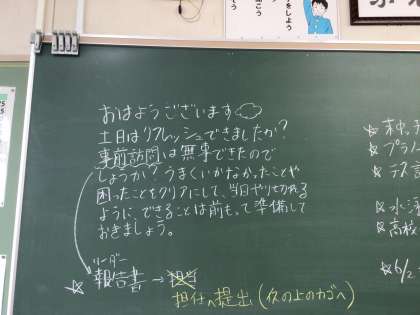 おはようございます
土日はリフレッシュできましたか?
事前訪問は無事できたので
しょうか? うまくいかなかったことや
困ったことをクリアにして、当日やり切れる
ように、できることは前もって準備して
おきましょう。
リーダー
☆ 報告書 → 担当
担任へ提出 (久の上のカゴへ)
をしよう
そう
☆ プラム
☆ テスト
☆ 水泳
☆ 高校
☆ 6/2